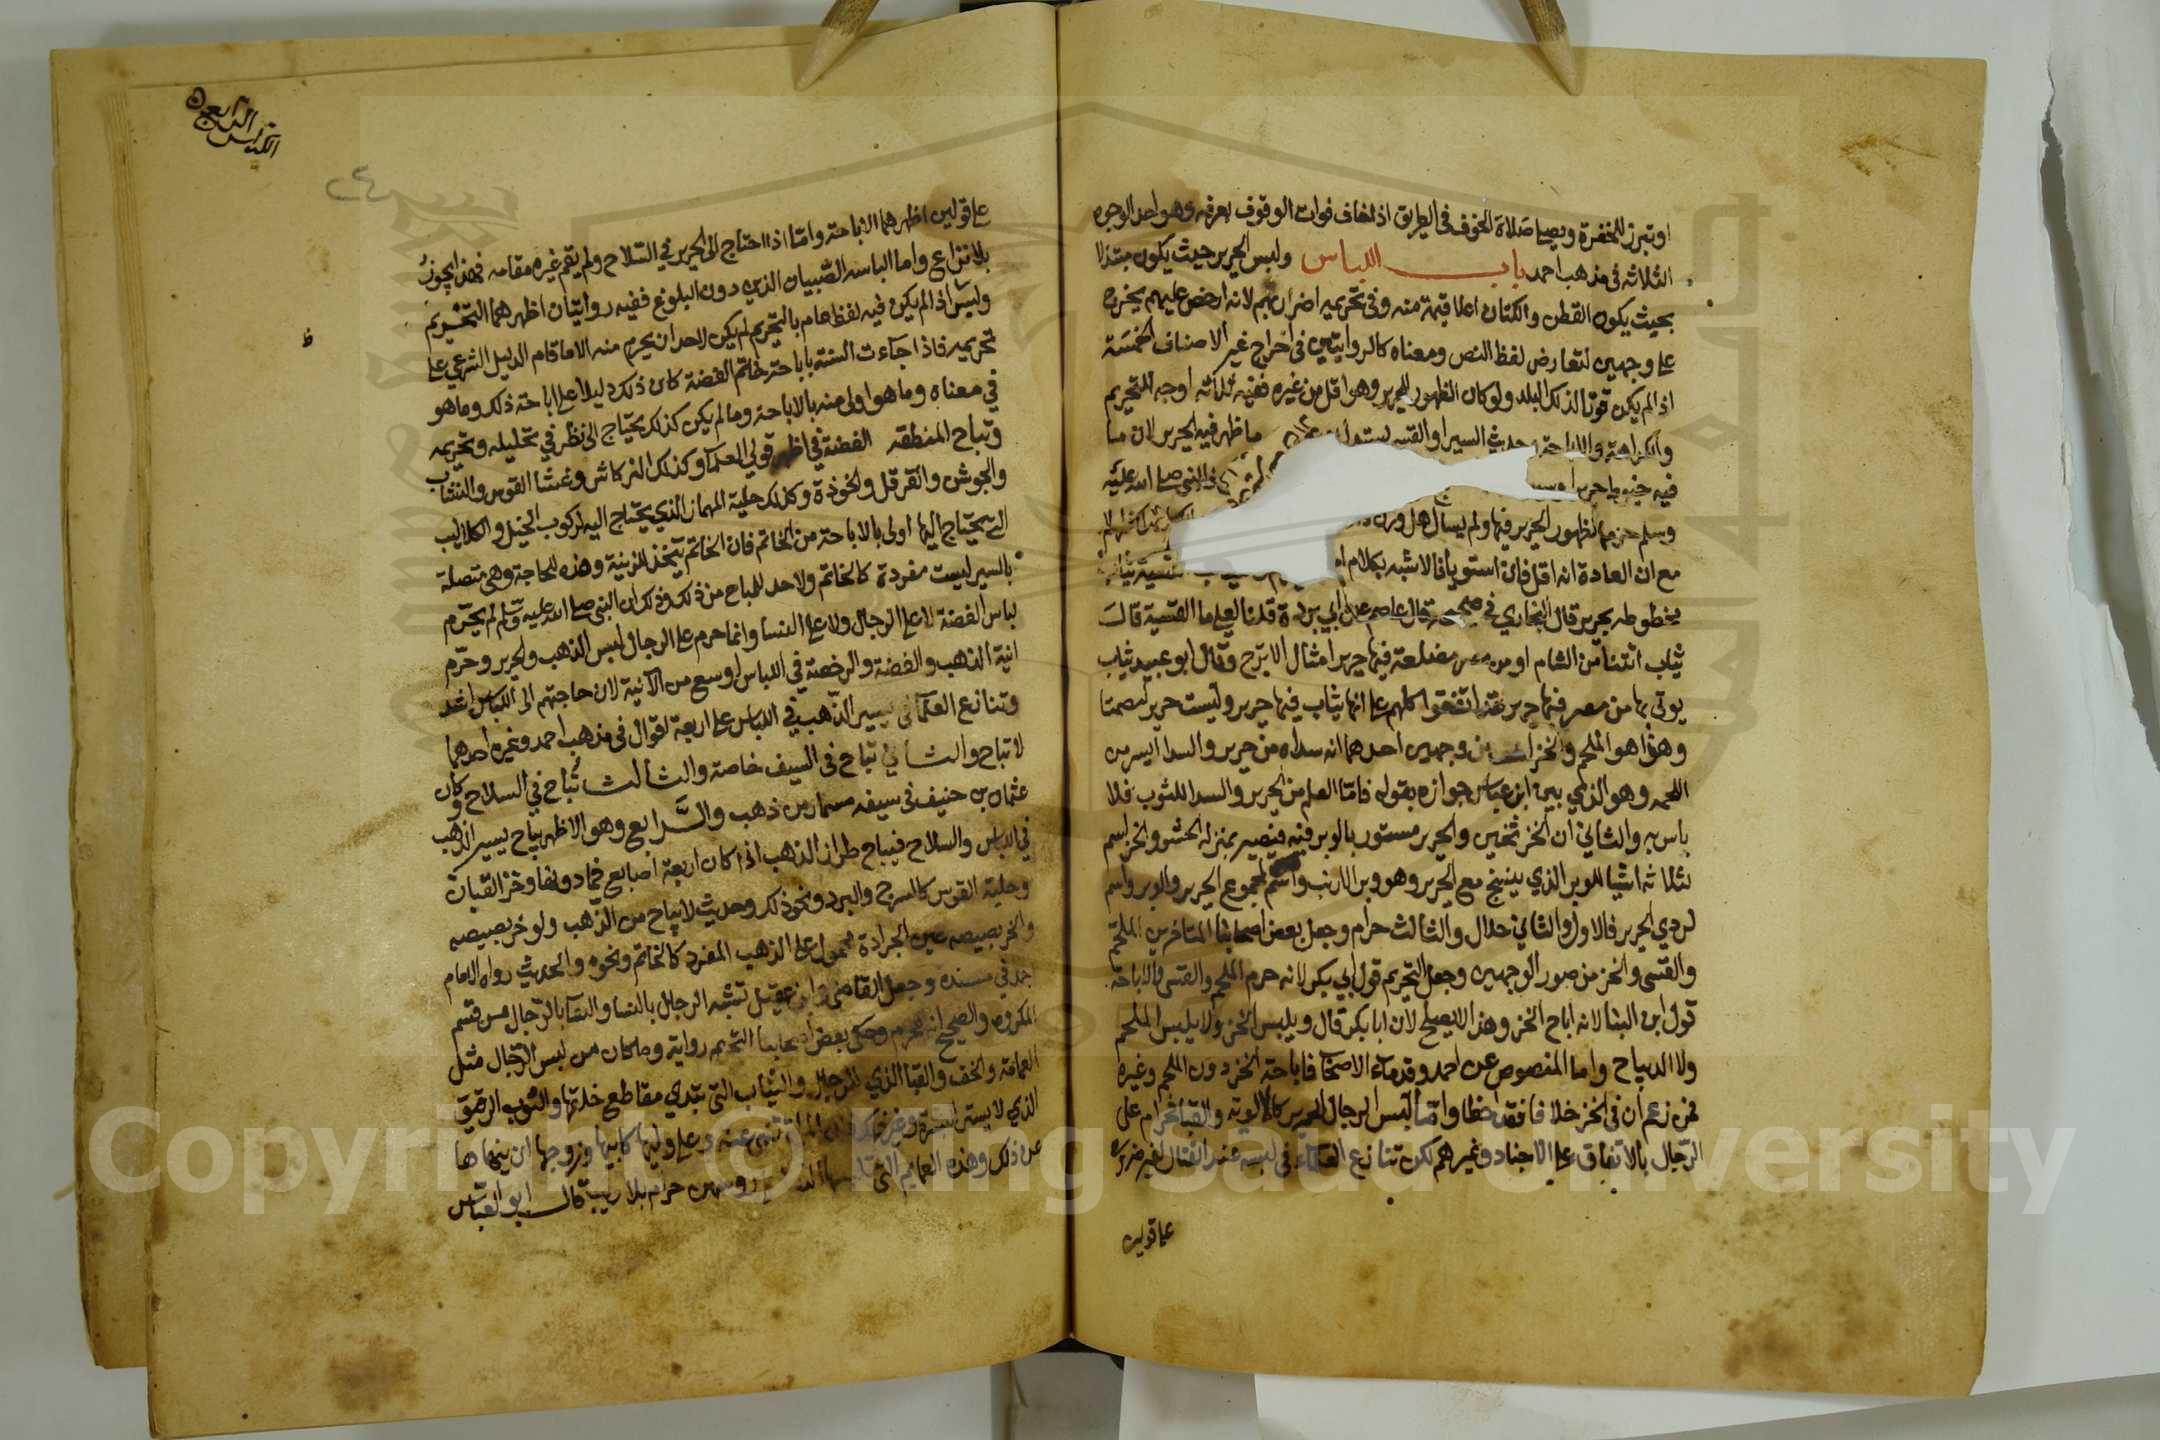 او تبرز للخفرة ويصلي صلاة الخوف في الطريق اذا خاف فوات الوقوف بعرفه وهو احد الوجوه
الثلاثه في مذهب احمد باب اللباس ولبس الحرير حيث يكون مبتذلا
بحيث يكون القطن والكتان اعلا قيمة منه وفي تحريمه اضرار بهم لانه ارخص عليهم يخرج
على وجهين لتعارض لفظ النص ومعناه كالروايتين في اخراج غير الاصناف الخمسة
اذا لم يكن قوتا لذلك البلد ولو كان الظهور للحرير وهو اقل من غيره ففيه ثلاثه اوجه التحريم
والكراهة والاباحة وحديث السيرا والقسيه ما ظهر فيه الحرير لان ما
فيه خيوط حرير النبي صلى الله عليه
وسلم حرمها لظهور الحرير فيها ولم يسال هل وزن
مع ان العادة انه اقل فان استويا فالاشبه بكلام ثياب
مخطوطه بحرير قال البخاري في صحيحه قال عاصم عن ابي بردة قلنا لعلي ما القسية قال
ثياب اتتنا من الشام او من مصر مضلعة فيها حرير امثال الاترج وقال ابو عبيد ثياب
يوتى بها من مصر فيها حرير فقد اتفقوا كلهم على انها ثياب فيها حرير وليست حرير مصمتا
وهذا هو الملحم والخز من وجهين احدهما انه سداه من حرير والسدا ايسر من
اللحمه وهو الذي بين ابن عباس جوازه بقوله فاما العلم من الحرير والسدا للثوب فلا
باس به والثاني ان الخز ثخين والحرير مستور بالوبر فيه فيصير بمنزلة الحشو والخز اسم
لثلاثه اشيا للوبر الذي ينسج مع الحرير وهو وبر الارنب واسم لمجموع الحرير والوبر واسم
لردي الحرير فالاول والثاني حلال والثالث حرام وجعل بعض اصحابنا المتاخرين الملحم
والقسي والخز من صور الوجهين وجعل التحريم قول ابي بكر لانه حرم الملحم والقسي والاباحة
قول ابن البنا لانه اباح الخز وهذا لا يصلح لان ابا بكر قال ويلبس الخز ولا يلبس الملحم
ولا الديباج واما المنصوص عن احمد وقدماء الاصحاب فاباحة الخز دون الملحم وغيره
فمن زعم ان في الخز خلافا فقد اخطا واما لبس الرجال الحرير كالالوية والقبا فحرام على
الرجال بالاتفاق على الاجناد وغيرهم لكن تنازع العلماء في لبسه عند القتال لغير ضرورة
على قولين
الكراس الرابع
على قولين اظهرهما الاباحة واما اذا احتاج الى الحرير في السلاح ولم يقم غيره مقامه فهذا يجوز
بلا نزاع واما الباسه الصبيان الذين دون البلوغ ففيه روايتان اظهرهما التحريم
وليس اذا لم يكن فيه لفظ عام بالتحريم لم يكن لاحد ان يحرم منه الا ما قام الدليل الشرعي على
تحريمه فاذا جاءت السنة باباحة خاتم الفضة كان ذلك دليلا على اباحة ذلك وما هو
في معناه وما هو اولى منه بالاباحة وما لم يكن كذلك يحتاج الى نظر في تحليله وتحريمه
وتباح المنطقه الفضة في اظهر قولي العلما وكذلك التركاش وغشا القوس والنشاب
والجوشن والقرقل والخوذة وكذلك حلية المهماز الذي يحتاج اليه لركوب الخيل والكلاليب
التي يحتاج اليها اولى بالاباحة من الخاتم فان الخاتم يتخذ للزينة وهذه للحاجة وهي متصلة
بالسير ليست مفردة كالخاتم ولا حد للمباح من ذلك وذلك ان النبي صلى الله عليه وسلم لم يحرم
لباس الفضة لا على الرجال ولا على النسا وانما حرم على الرجال لبس الذهب والحرير وحرم
انية الذهب والفضة والرخصة في اللباس اوسع من الآنية لان حاجتهم الى اللباس اشد
وتنازع العلما في يسير الذهب في اللباس على اربعة اقوال في مذهب احمد وغيره احدهما
لا تباح والثاني تباح في السيف خاصة والثالث تباح في السلاح وكان
عثمان بن حنيف في سيفه مسمار من ذهب والرابع وهو الاظهر يباح يسير الذهب
في اللباس والسلاح فيباح طراز الذهب اذا كان اربعة اصابع فما دونها وخز القبان
وحلية القوس كالسرج والبرد ونحو ذلك وحديث لا يباح من الذهب ولو خربصيصه
والخربصيصه عين الجرادة محمول على الذهب المفرد كالخاتم ونحوه والحديث رواه الامام
حمد في مسنده وجعل القاضي وابن عقيل تشبه الرجال بالنسا والنسا بالرجال من قسم
المكروه والصحيح انه محرم وحكى بعض اصحابنا التحريم رواية وما كان من لبس الرجال مثل
العمامة والخف والقبا الذي للرجال والثياب التي تبدي مقاطع خلقها والثوب الرقيق
الذي لا يستر البشرة وغير ذلك فان المراة تنهى عنه وعلى وليها كابيها وزوجها ان ينهاها
عن ذلك وهذه العمايم التي تلبسها النسا على روسهن حرام بلا ريب قال ابو العباس